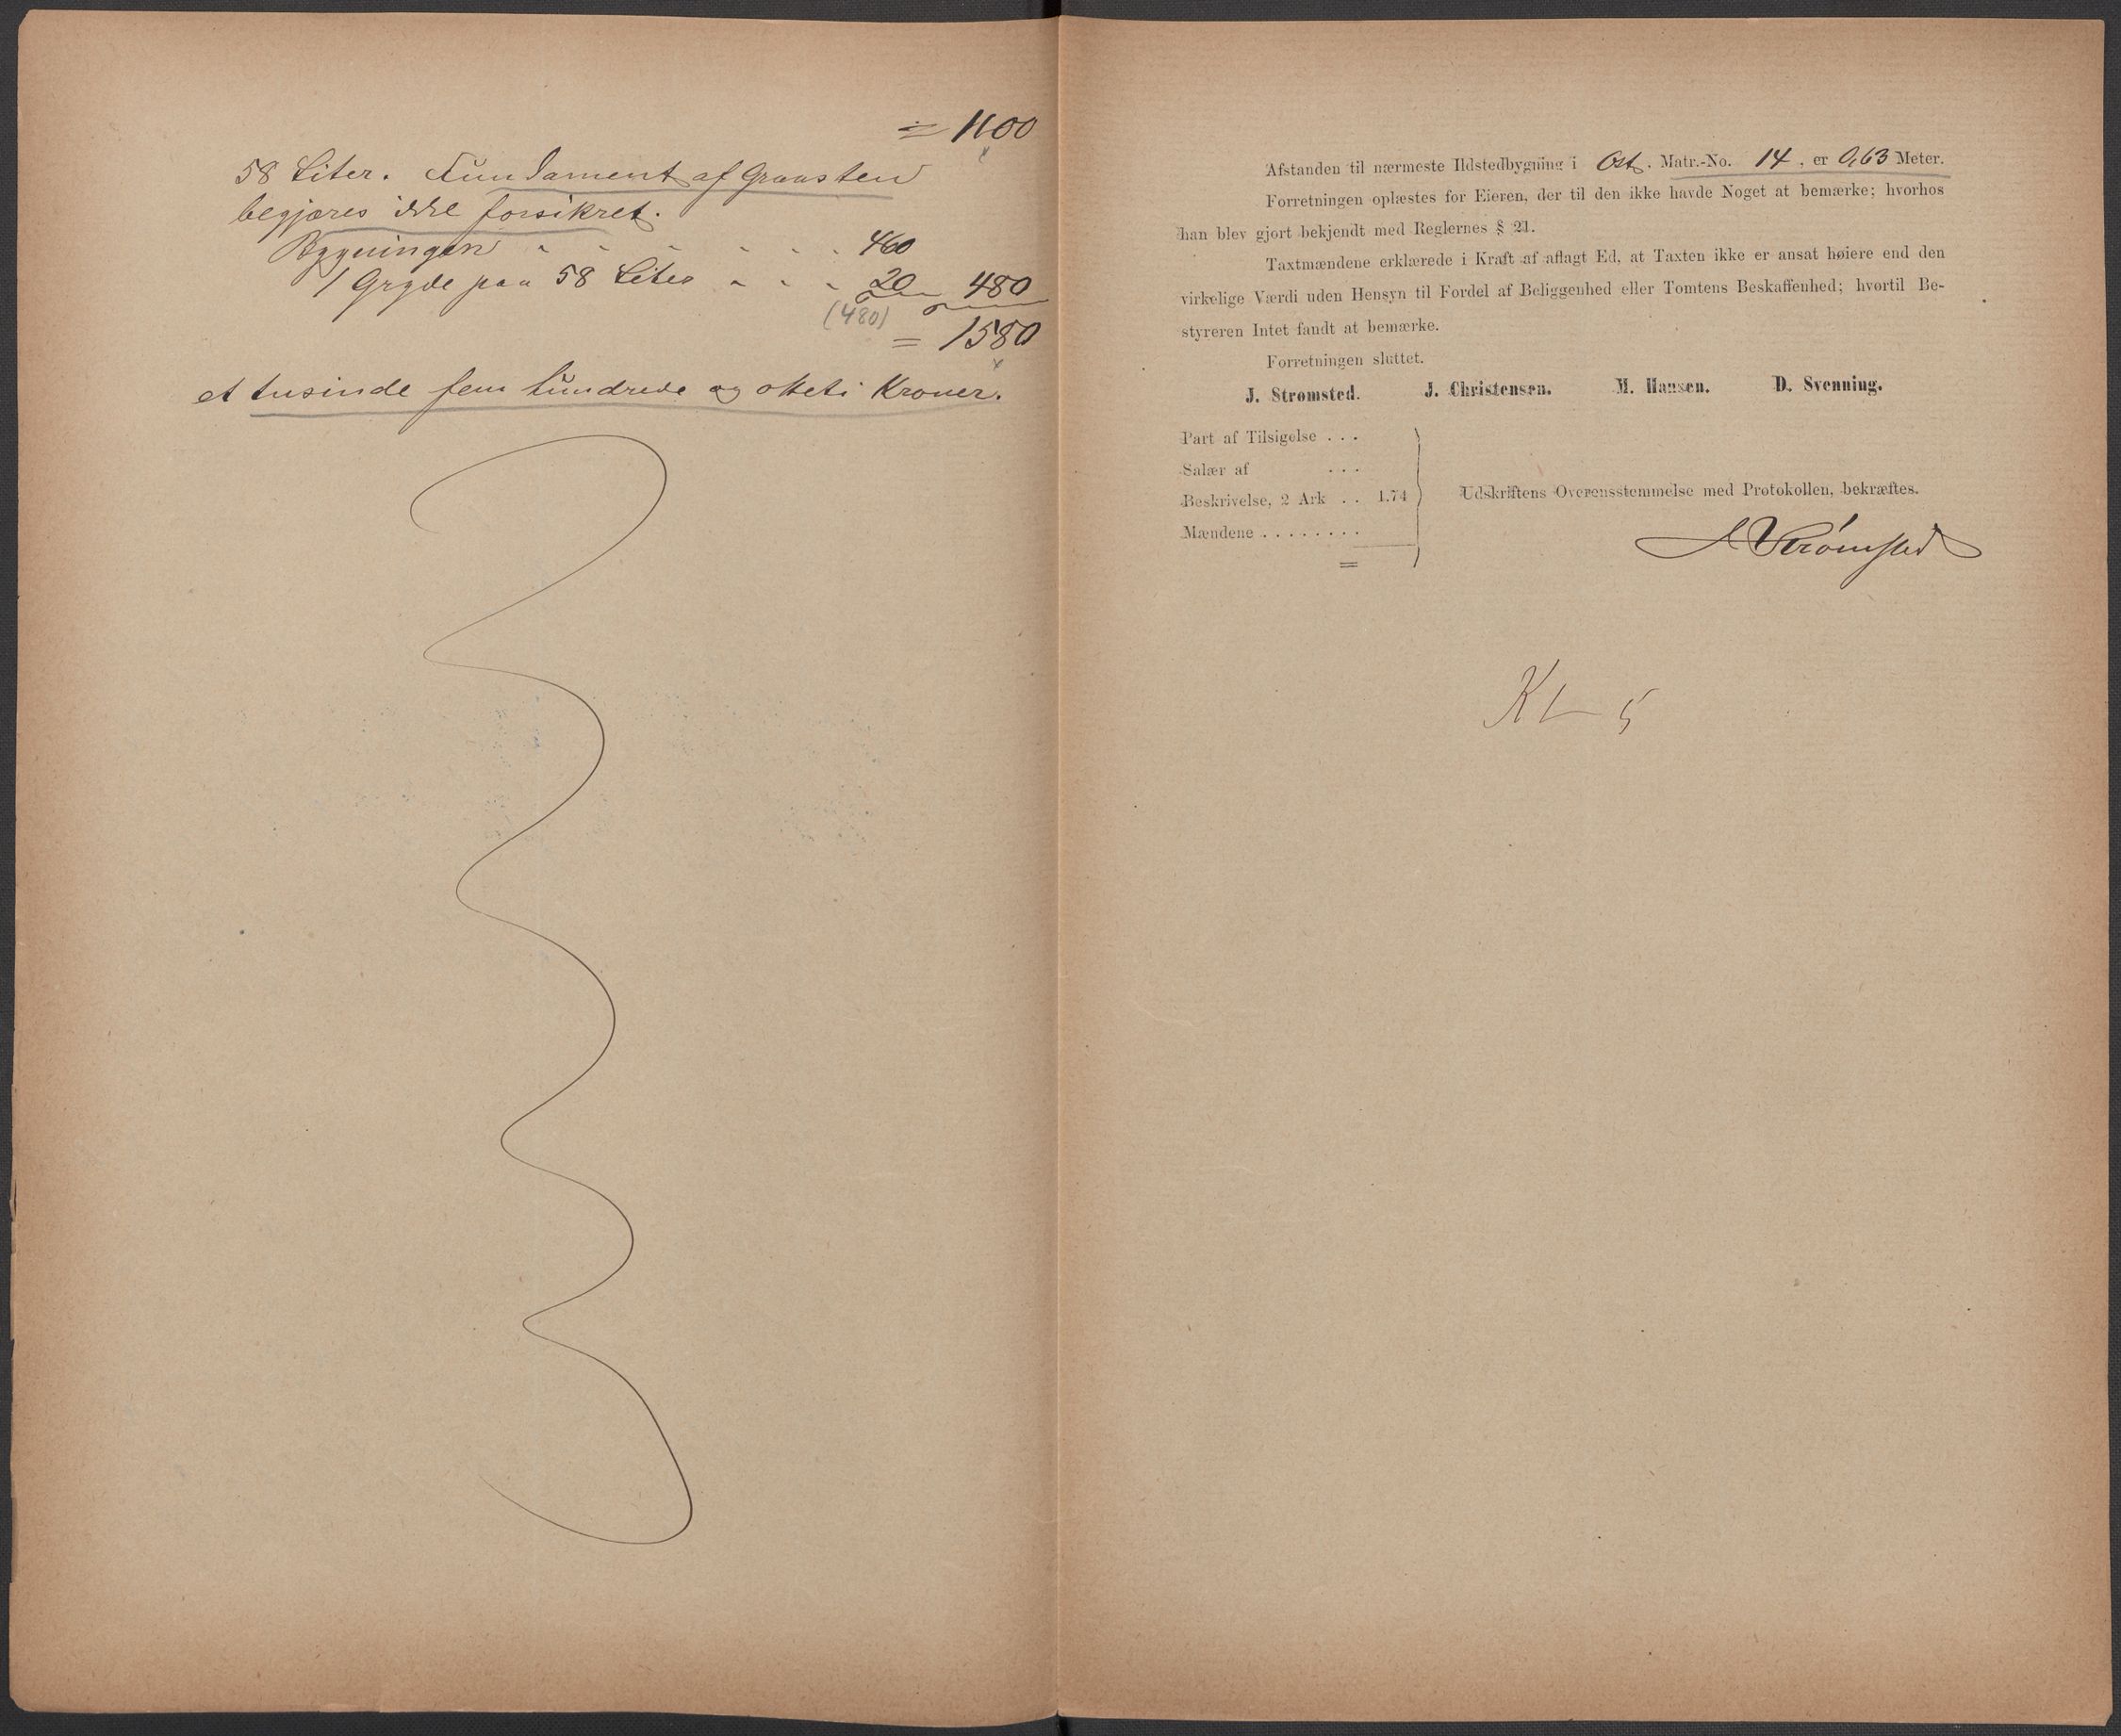 = 1100
58 Liter. Fundament af Graasten
begjæres ikke forsikret.
Bygningen " " " " " " 460
1 Gryde paa 58 Liter " " " 20 480
(480)
= 1580
et tusinde fem hundrede og otteti Kroner.
Afstanden til nærmeste Ildstedbygning i Øst. Matr.-No. 14, er 0,63 Meter.
Forretningen oplæstes for Eieren, der til den ikke havde Noget at bemærke; hvorhos
han blev gjort bekjendt med Reglernes § 21.
Taxtmændene erklærede i Kraft af aflagt Ed, at Taxten ikke er ansat høiere end den
virkelige Værdi uden Hensyn til Fordel af Beliggenhed eller Tomtens Beskaffenhed; hvortil Be-
styreren Intet fandt at bemærke.
Forretningen sluttet.
J. Strømsted. J. Christensen. M. Hansen. D. Svenning.
Part af Tilsigelse . . .
Salær af . . .
Beskrivelse, 2 Ark . . 1.74
Udskriftens Overensstemmelse med Protokollen, bekræftes.
Mændene . . . . . . . .
=
J Strømsted
Kl 5